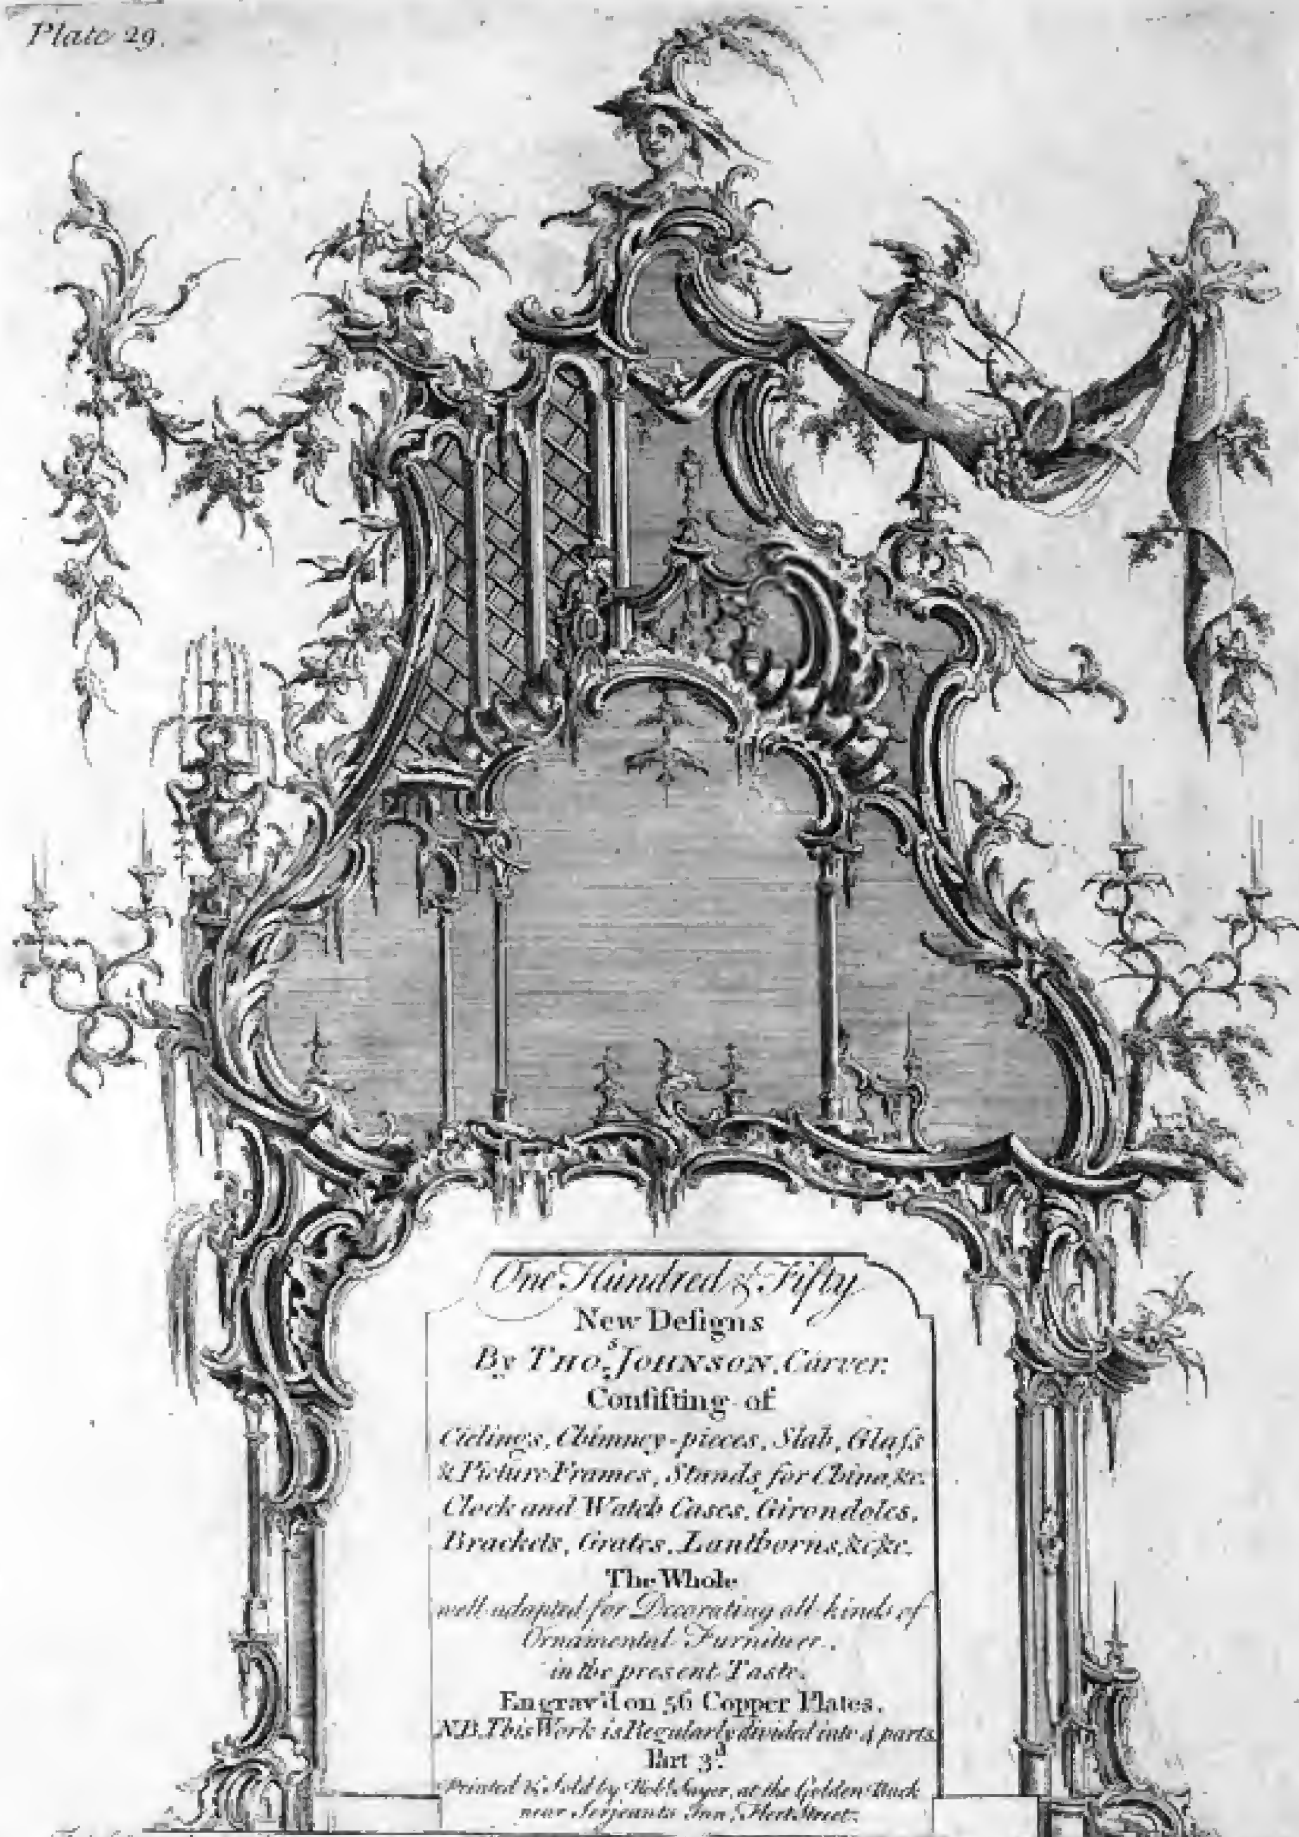 Plate 29.
One Hundred & Fifty
New Deſigns
By THOˢ. JOHNSON, Carver.
Conſiſting of
Cielings, Chimney-pieces, Slab, Glaſs
& Picture Frames, Stands for China, &c.
Clock and Watch Cases, Girondoles,
Brackets, Grates, Lanthorns, &c. &c.
The Whole
well adapted for Decorating all kinds of
Ornamental Furniture,
in the present Taste.
Engrav'd on 56 Copper Plates.
N.B. This Work is Regularly divided into 4 parts.
Part 3ᵈ.
Printed & Sold by Robᵗ. Sayer, at the Golden Buck
near Serjeants Inn, Fleet Street.